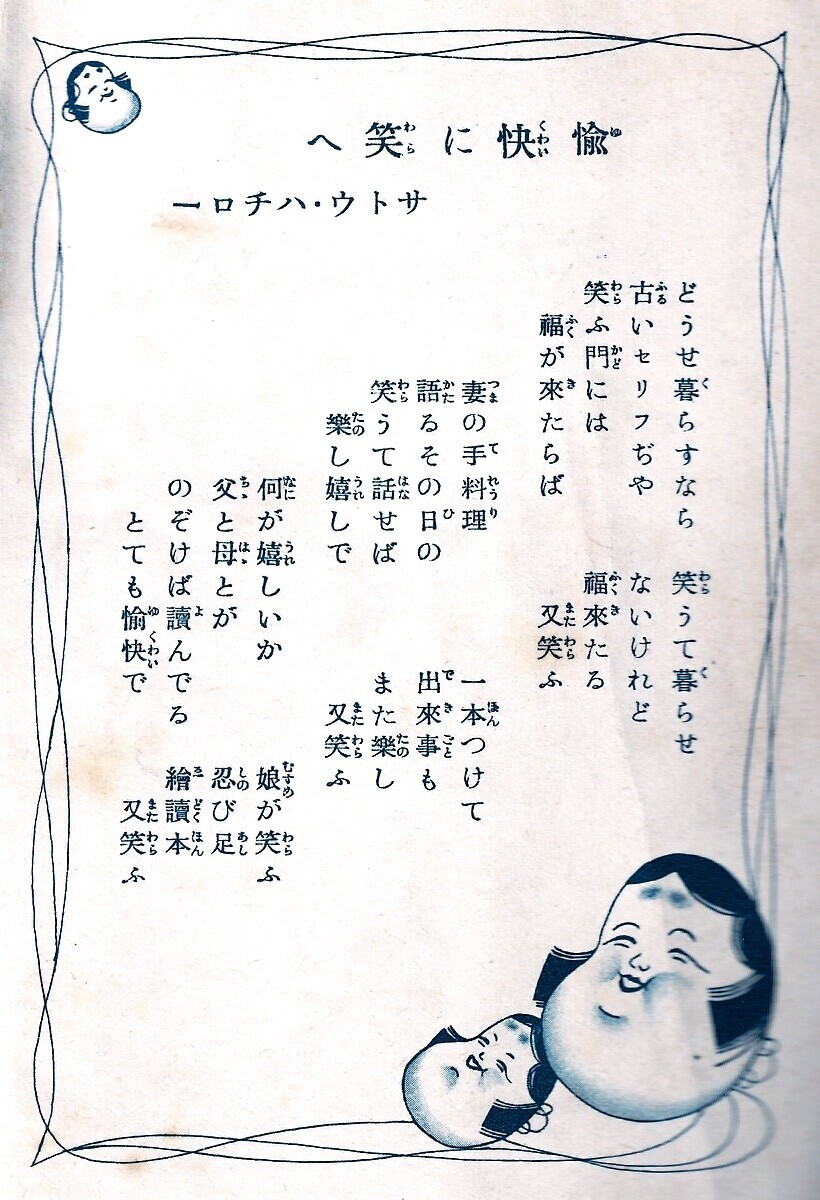 愉快に笑へ
サトウ・ハチロー
どうせ暮らすなら　笑うて暮らせ
古いセリフぢや　ないけれど
笑ふ門には　福來たる
福が來たらば　又笑ふ
妻の手料理　一本つけて
語るその日の　出來事も
笑うて話せば　また樂し
樂し嬉しで　又笑ふ
何が嬉しいか　娘が笑ふ
父と母とが　忍び足
のぞけば讀んでる　繪讀本
とても愉快で　又笑ふ